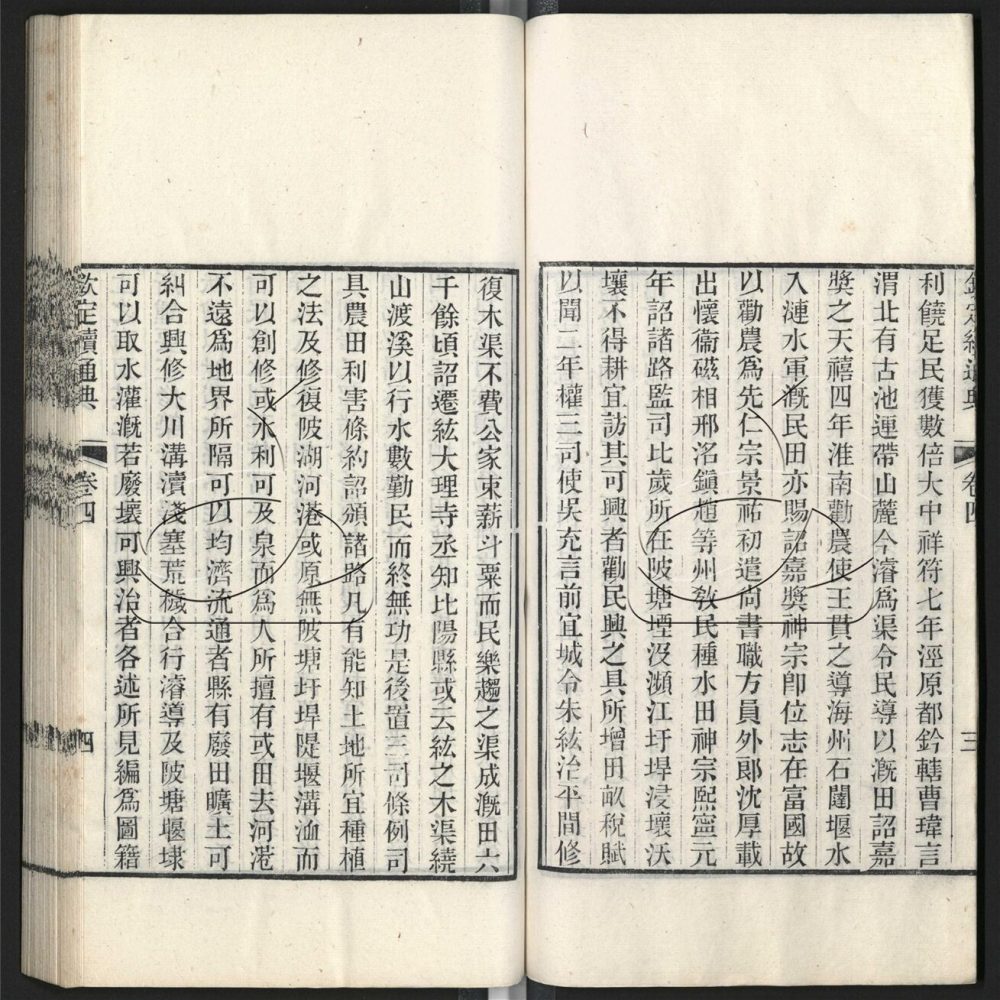 欽定續通典 卷四 三
利饒足民獲數倍大中祥符七年涇原都鈐轄曹瑋言
渭北有古池連帶山麓今濬爲渠令民導以漑田詔嘉
獎之天禧四年淮南勸農使王貫之導海州石闥堰水
入漣水軍漑民田亦賜詔嘉獎神宗卽位志在富國故
以勸農爲先仁宗景祐初遣尚書職方員外郞沈厚載
出懷衞磁相邢洺鎭趙等州敎民種水田神宗熙寧元
年詔諸路監司比歲所在陂塘堙沒瀕江圩垾浸壞沃
壤不得耕宜訪其可興者勸民興之具所增田畝稅賦
以聞二年權三司使吳充言前宜城令朱紘治平間修
復木渠不費公家束薪斗粟而民樂趨之渠成漑田六
千餘頃詔遷紘大理寺丞知比陽縣或云紘之木渠繞
山渡溪以行水數勤民而終無功是後置三司條例司
具農田利害條約詔頒諸路凡有能知土地所宜種植
之法及修復陂湖河港或原無陂塘圩垾隄堰溝洫而
可以創修或水利可及泉而爲人所擅有或田去河港
不遠爲地界所隔可以均濟流通者縣有廢田曠土可
糾合興修大川溝瀆淺塞荒穢合行濬導及陂塘堰埭
可以取水灌漑若廢壞可興治者各述所見編爲圖籍
欽定續通典 卷四 四